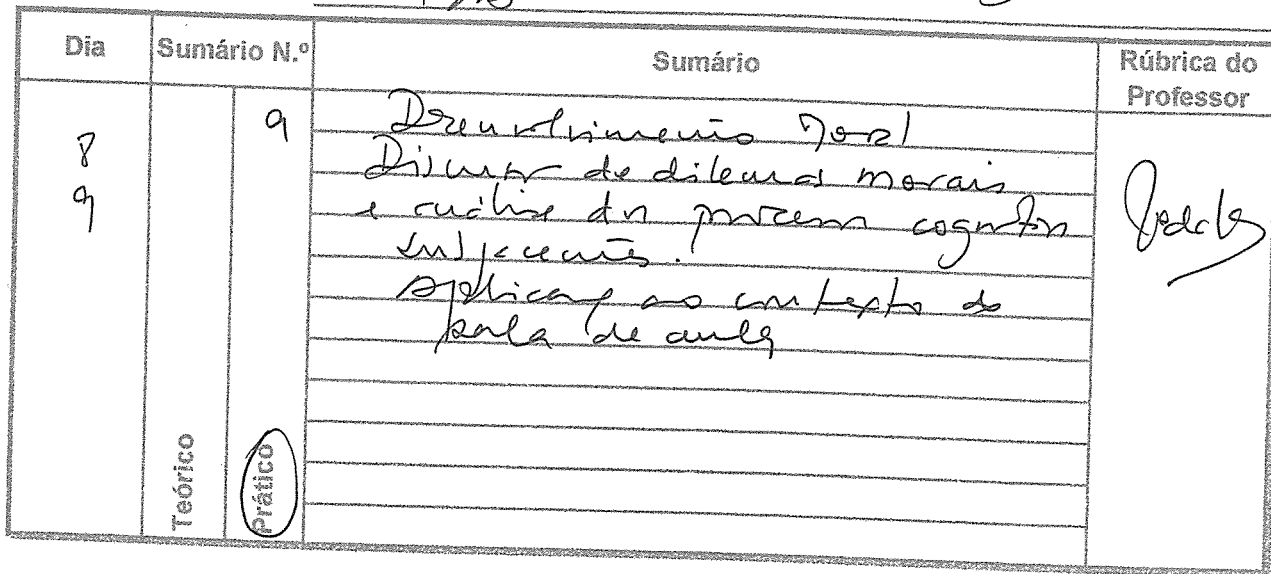 Dia Sumário N.º Sumário Rúbrica do Professor
8
9
9
Desenvolvimento Moral
Discussão de dilemas morais
e análise dos processos cognitivos
subjacentes.
Aplicação ao contexto de
sala de aula
Teórico
Prático